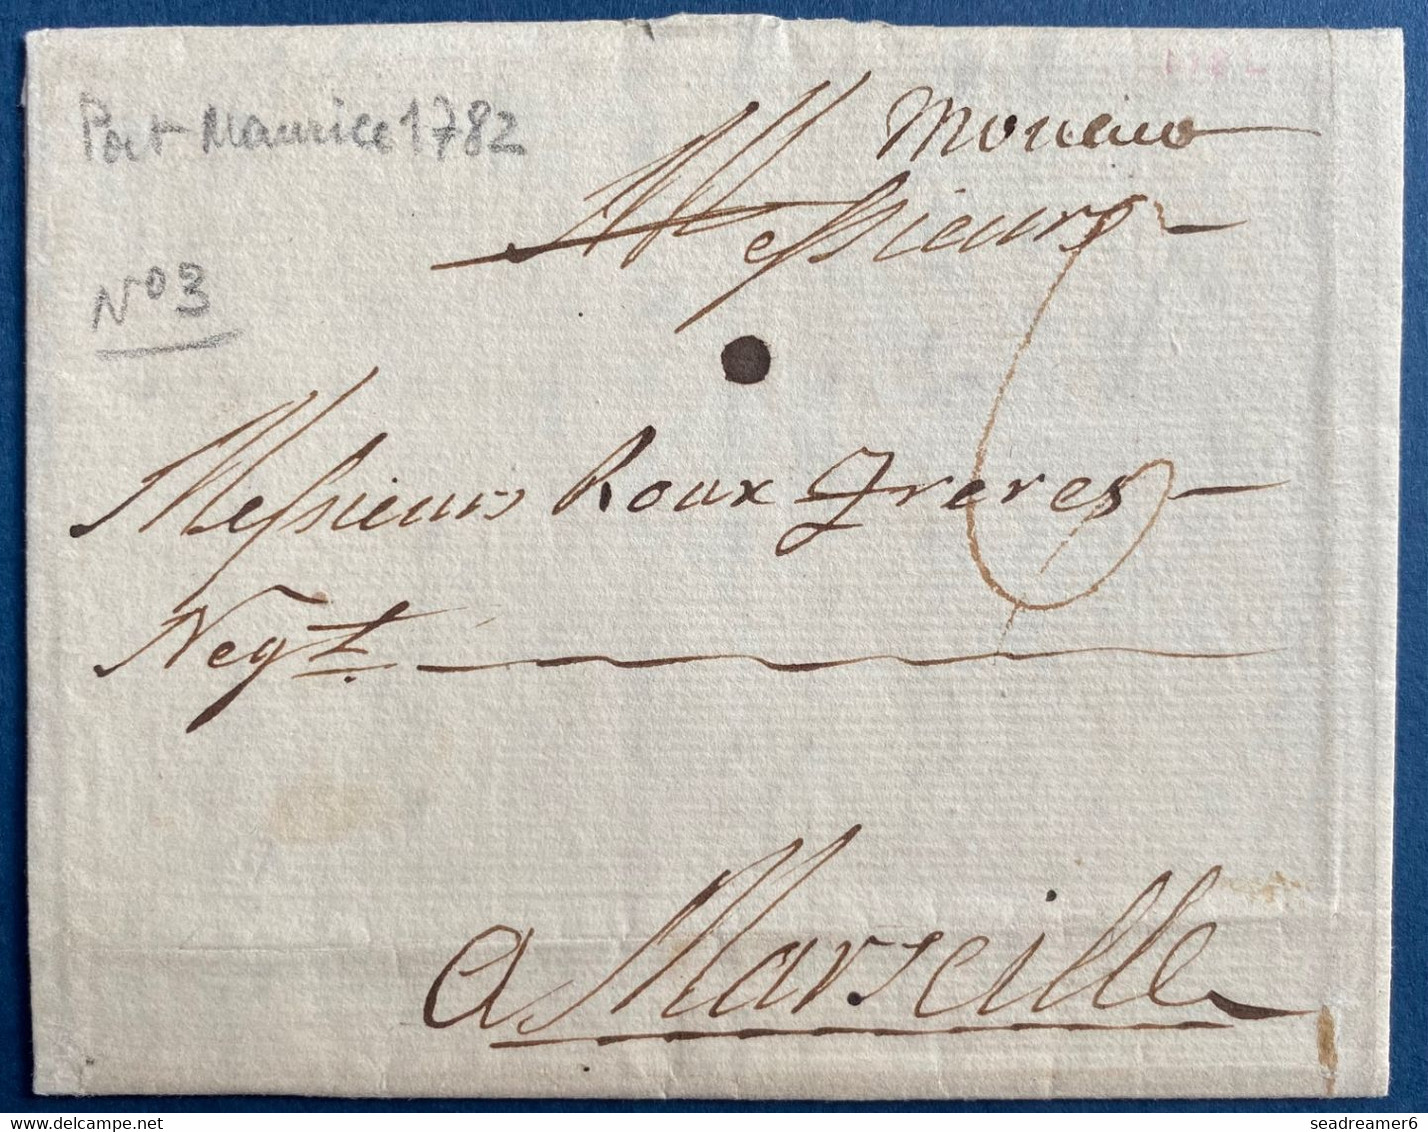 Port Maurice 1782
N° 3
Monaco
Messieurs
Messieurs Roux Freres
Negt.
6
a Marseille
seadreamer6
delcampe.net